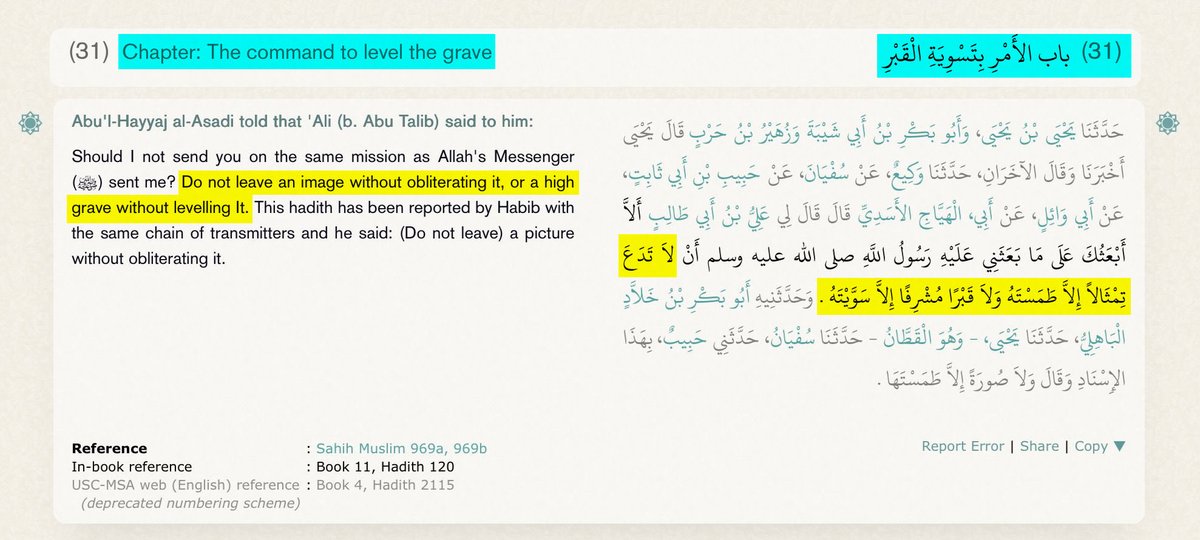 (31) Chapter: The command to level the grave
(31) باب الأَمْرِ بِتَسْوِيَةِ الْقَبْرِ
Abu'l-Hayyaj al-Asadi told that 'Ali (b. Abu Talib) said to him:
Should I not send you on the same mission as Allah's Messenger
(ﷺ) sent me? Do not leave an image without obliterating it, or a high
grave without levelling It. This hadith has been reported by Habib with
the same chain of transmitters and he said: (Do not leave) a picture
without obliterating it.
حَدَّثَنَا يَحْيَى بْنُ يَحْيَى، وَأَبُو بَكْرِ بْنُ أَبِي شَيْبَةَ وَزُهَيْرُ بْنُ حَرْبٍ قَالَ يَحْيَى
أَخْبَرَنَا وَقَالَ الآخَرَانِ، حَدَّثَنَا وَكِيعٌ، عَنْ سُفْيَانَ، عَنْ حَبِيبِ بْنِ أَبِي ثَابِتٍ،
عَنْ أَبِي وَائِلٍ، عَنْ أَبِي، الْهَيَّاجِ الأَسَدِيِّ قَالَ قَالَ لِي عَلِيُّ بْنُ أَبِي طَالِبٍ أَلاَّ
أَبْعَثُكَ عَلَى مَا بَعَثَنِي عَلَيْهِ رَسُولُ اللَّهِ صلى الله عليه وسلم أَنْ لاَ تَدَعَ
تِمْثَالاً إِلاَّ طَمَسْتَهُ وَلاَ قَبْرًا مُشْرِفًا إِلاَّ سَوَّيْتَهُ . وَحَدَّثَنِيهِ أَبُو بَكْرِ بْنُ خَلاَّدٍ
الْبَاهِلِيُّ، حَدَّثَنَا يَحْيَى، - وَهُوَ الْقَطَّانُ - حَدَّثَنَا سُفْيَانُ، حَدَّثَنِي حَبِيبٌ، بِهَذَا
الإِسْنَادِ وَقَالَ وَلاَ صُورَةً إِلاَّ طَمَسْتَهَا .
Reference : Sahih Muslim 969a, 969b
In-book reference : Book 11, Hadith 120
USC-MSA web (English) reference : Book 4, Hadith 2115
(deprecated numbering scheme)
Report Error | Share | Copy ▼